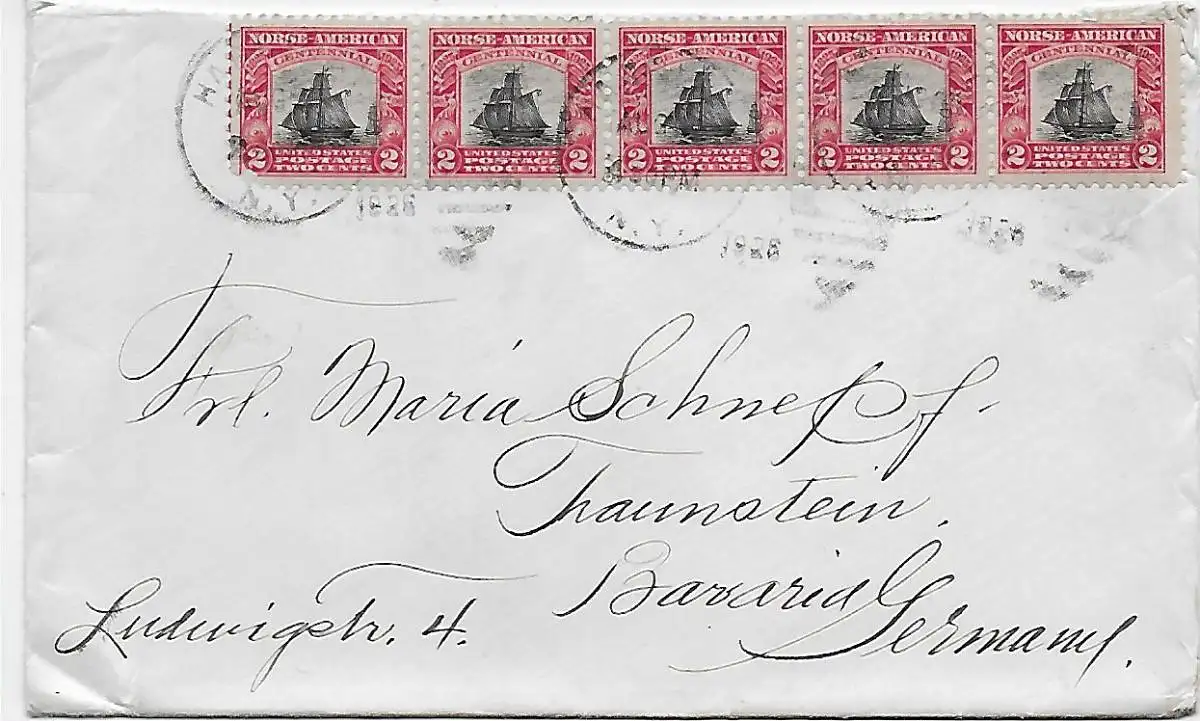 NORSE-AMERICAN NORSE-AMERICAN NORSE-AMERICAN NORSE-AMERICAN NORSE-AMERICAN
CENTENNIAL CENTENNIAL CENTENNIAL CENTENNIAL CENTENNIAL
UNITED STATES UNITED STATES UNITED STATES UNITED STATES UNITED STATES
2 POSTAGE 2 2 POSTAGE 2 2 POSTAGE 2 2 POSTAGE 2 2 POSTAGE 2
TWO CENTS TWO CENTS TWO CENTS TWO CENTS TWO CENTS
N.Y. 1926 N.Y. 1926 1926
Frl. Maria Schnepf
Traunstein,
Bavaria
Ludwigstr. 4. Germany.